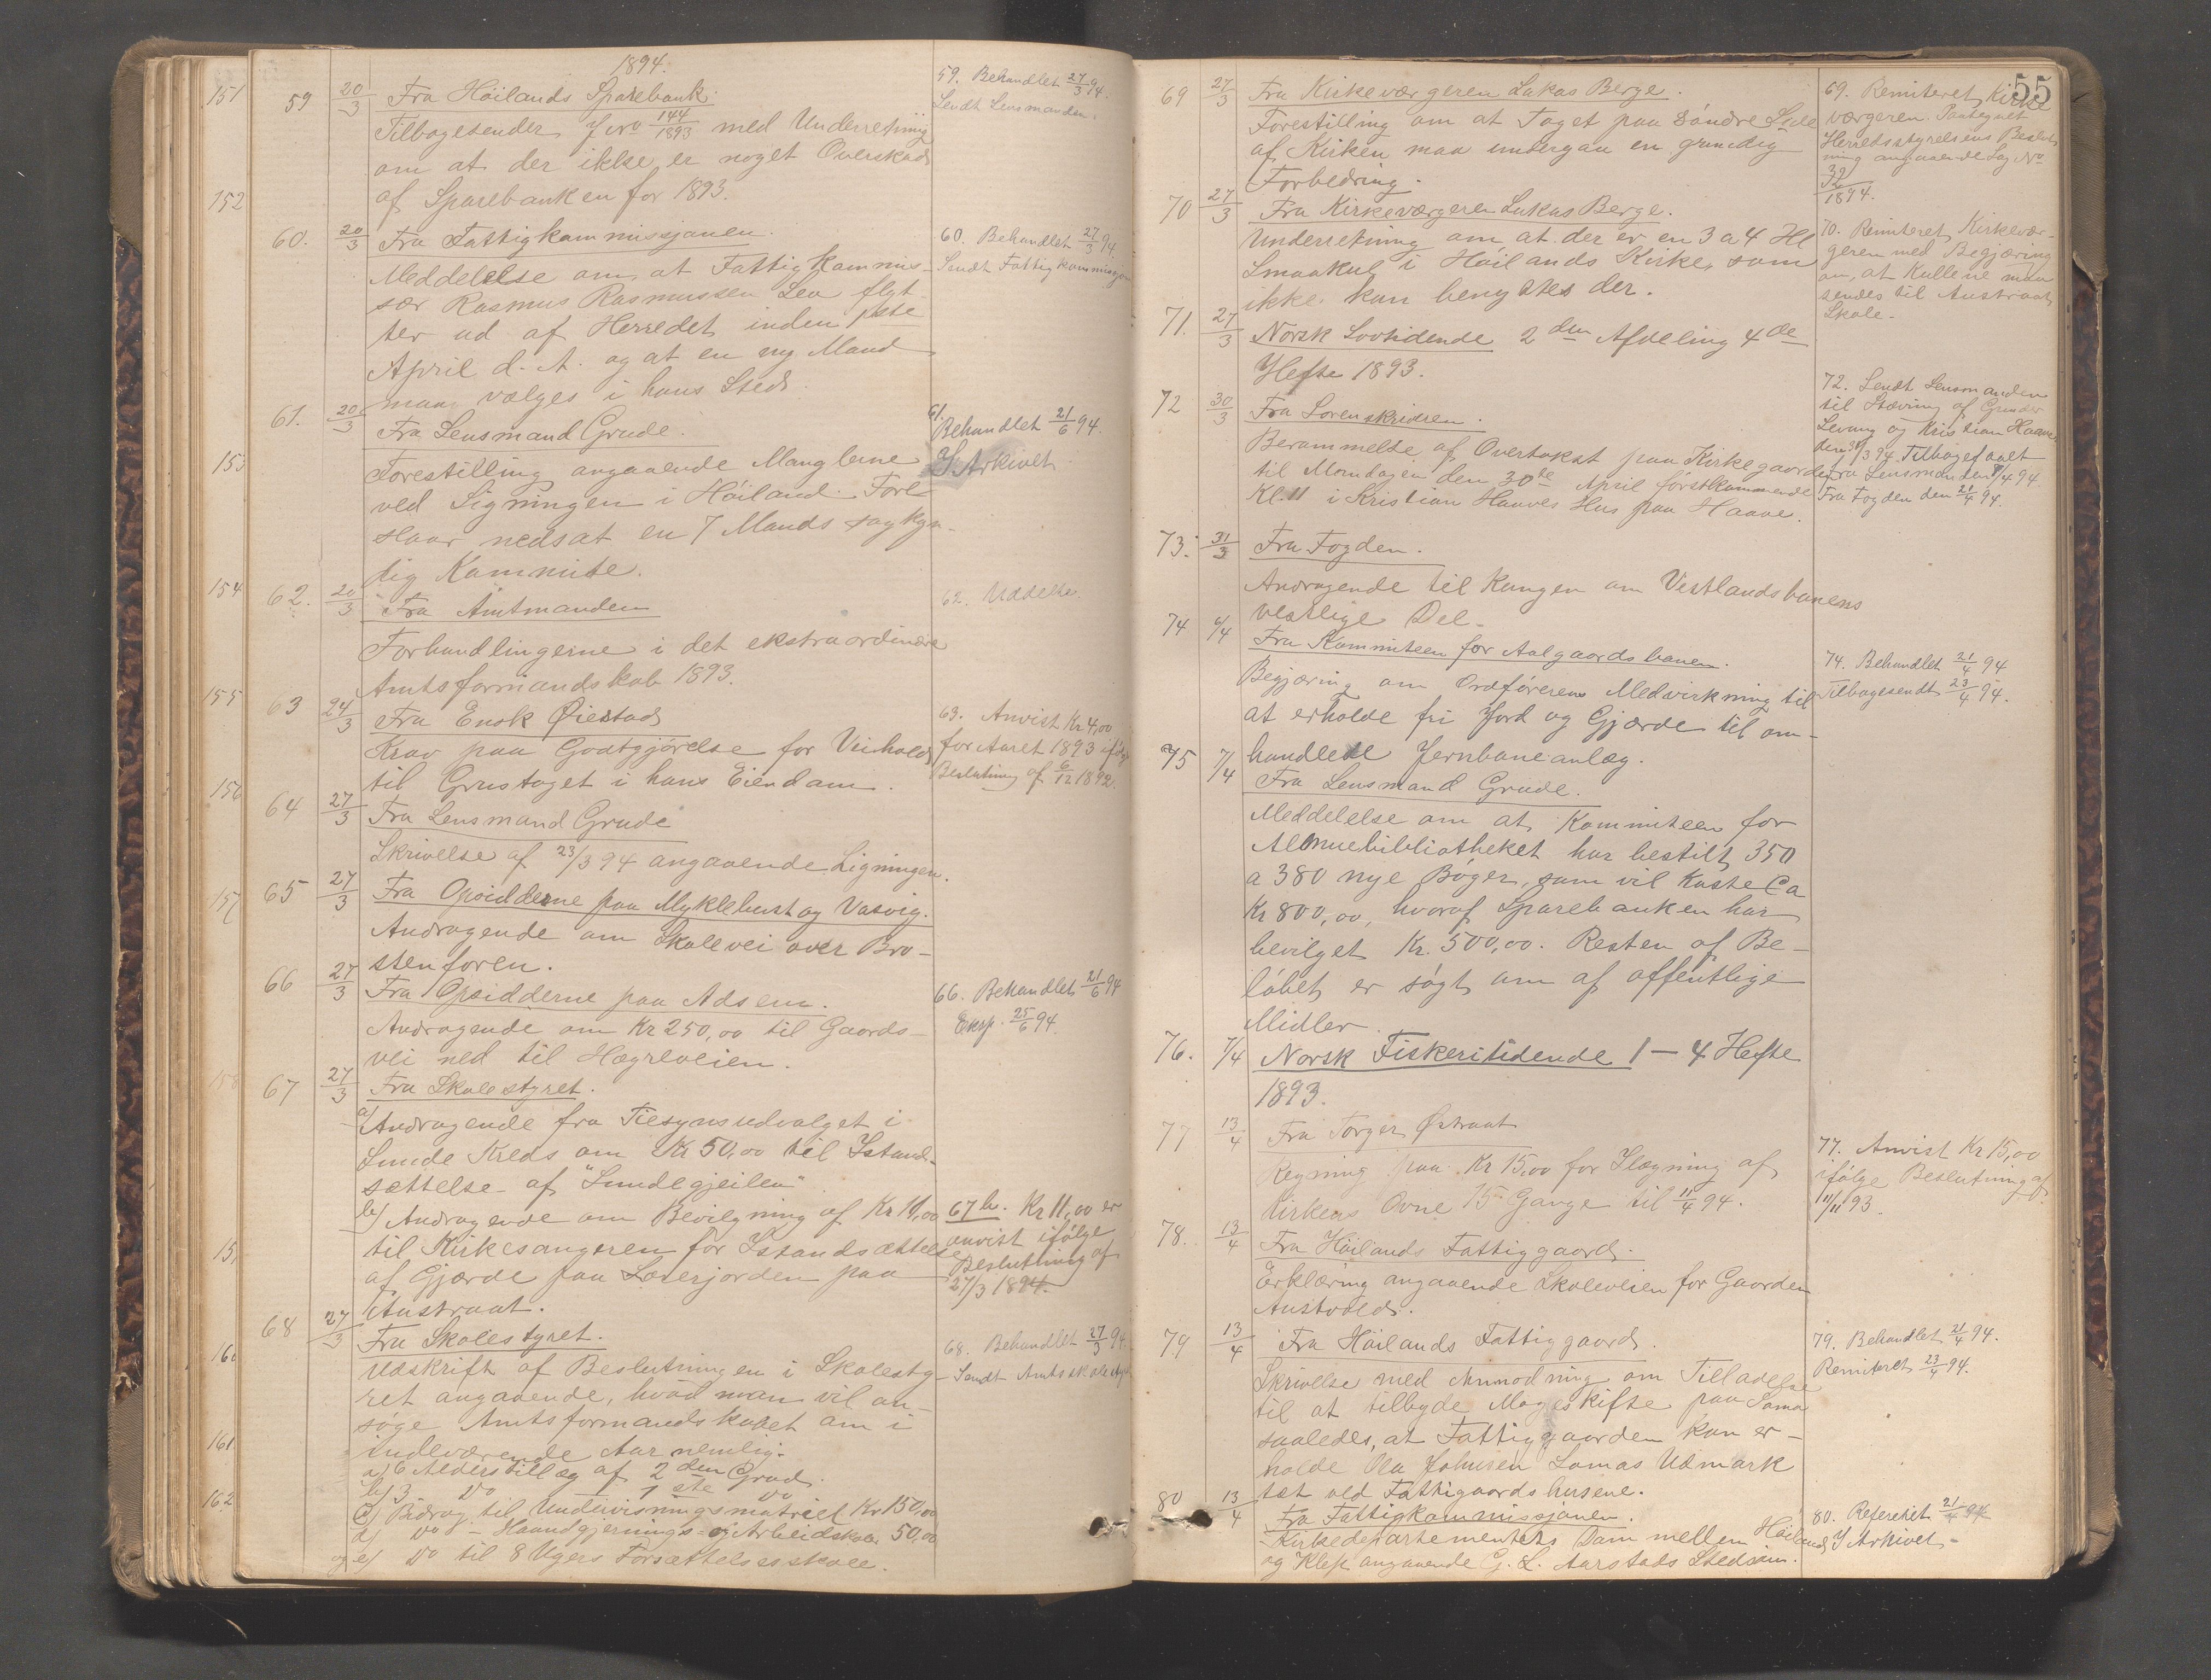 1894.
59 20/3 Fra Höilands Sparebank.
Tilbagesender J No 144/1893 med Underretning
om at der ikke er noget Overskud
af Sparebanken for 1893.
59. Behandlet 27/3 94.
Sendt Lensmanden.
60. 20/3 Fra Fattigkommissjonen.
Meddelelse om at Fattigkommis-
sær Rasmus Rasmussen Lea flyt-
ter ud af Herredet inden 1ste
April d. A. og at en ny Mand
maa vælges i hans Sted.
60. Behandlet 27/3 94.
Sendt Fattigkommissjon
61. 20/3 Fra Lensmand Grude.
Forestilling angaaende Manglerne
ved Ligningen i Höiland. Forl-
staar nedsat en 7 Mands sagkyn-
dig Kommite.
61.
Behandlet 21/6 94.
I Arkivet
62. 20/3 Fra Amtmanden
Forhandlingerne i det ekstraordinære
Amtsformandskab 1893.
62. Uddelte.
63 24/3 Fra Enok Öiestad
Krav paa Godtgjörelse for Veihold
til Grustaget i hans Eiendom.
63. Anvist Kr 4,00
for Aaret 1893 ifölge
Beslutning af 6/12 1892.
64 27/3 Fra Lensmand Grude
Skrivelse af 23/3 94 angaaende Ligningen.
65 27/3 Fra Opsidderne paa Myklebust og Vasvig.
Andragende om Skolevei over Bro-
stenforen.
66 27/3 Fra Opsidderne paa Adsem.
Andragende om Kr 250,00 til Gaards-
vei ned til Hogreveien.
66. Behandlet 21/6 94
Eksp. 25/6 94.
67 27/3 Fra Skolestyret.
a) Andragende fra Tilsynsudvalget i
Lunde Kreds om Kr 50,00 til Istand-
sættelse af "Lundegjeilen"
b) Andragende om Bevilgning af Kr 11,00
til Kirkesangeren for Istandsættelse
af Gjærde paa Lærerjorden paa
Austraat.
67 b. Kr 11,00 er
anvist ifölge
Beslutning af
27/3 1894.
68 27/3 Fra Skolestyret.
Udskrift af Beslutningen i Skolesty-
ret angaaende, hvad man vil an-
söge Amtsformandskabet om i
indeværende Aar nemlig:
a) 6 Alderstillæg af 2den Grad.
b) 3 Do - 1ste Do
c) Bidrag til Undervisningsmatriel Kr 150,00
d) Do - Haandgjernings- og Arbeidskole 50,00
og e) Do til 8 Ugers Forsættelsesskole.
68. Behandlet 27/3 94
Sendt Amtsskolesty
151
152
153
154
155
156
157
158
15
16
161
162
55
69 27/3 Fra Kirkeværgeren Lukas Berge.
Forestilling om at Taget paa söndre Side
af Kirken maa undergaa en grundig
Forbedring.
69. Remiteret Kirke
værgeren. Paategnet
Herredsstyrelsens Beslut-
ning angaaende Sag No
32
1894.
70 27/3 Fra Kirkeværgeren Lukas Berge.
Underretning om at der er en 3 a 4 Hl
Smaakul i Höilands Kirke, som
ikke kan benyttes der.
70. Remiteret Kirkevær-
geren med Begjæring
om, at Kullene maa
sendes til Austraat
Skole.
71. 27/3 Norsk Lovtidende 2den Afdeling 4de
Hefte 1893.
72 30/3 Fra Sorenskriveren.
Berammelse af Overtakst paa Kirkegaarden
til Mandagen den 30te April förstkommende
Kl. 11 i Kristian Haaves Hus paa Haave.
72. Sendt Lensmanden
til Stævning af Gunder
Levang og Kristian Haave
den 31/3 94. Tilbagefaaet
fra Lensmanden 8/4 94
Fra Fogden den 21/4 94.
73. 31/3 Fra Fogden.
Andragende til Kongen om Vestlandsbanens
vestlige Del.
74 6/4 Fra Kommiteen for Aalgaardsbanen.
Begjæring om Ordförerens Medvirkning til
at erholde fri Jord og Gjærde til om-
handlede Jernbaneanlæg.
74. Behandlet 21/4 94
Tilbagesendt 23/4 94.
75 7/4 Fra Lensmand Grude.
Meddelelse om at Kommiteen for
Almuebibliotheket har bestilt 350
a 380 nye Böger, som vil koste Ca
Kr 800,00, hvoraf Sparebanken har
bevilget Kr. 500,00. Resten af Be-
löbet er sögt om af offentlige
Midler.
76. 7/4 Norsk Fiskeritidende 1 - 4 Hefte
1893.
77 13/4 Fra Torger Östraat
Regning paa Kr 15,00 for Ilægning af
Kirkens Ovne 15 Gange til 11/4 94.
77. Anvist Kr 15,00
ifölge Beslutning af
11/11 93.
78. 13/4 Fra Höilands Fattiggaard.
Erklæring angaaende Skoleveien for Gaarden
Austvold.
79 13/4 Fra Höilands Fattiggaard.
Skrivelse med Anmodning om Tilladelse
til at tilbyde Mageskifte paa Soma
saaledes, at Fattiggaarden kan er-
holde Ola Johnsen Somas Udmark
tæt ved Fattigaardshusene.
79. Behandlet 21/4 94.
Remiteret 23/4 94.
80 13/4 Fra Fattigkommissjonen.
Kirkedepartementets Dom mellem Höiland
og Klep angaaende G. L. Aarstads Stedsom.
80. Refereret 21/4 94
I Arkivet.